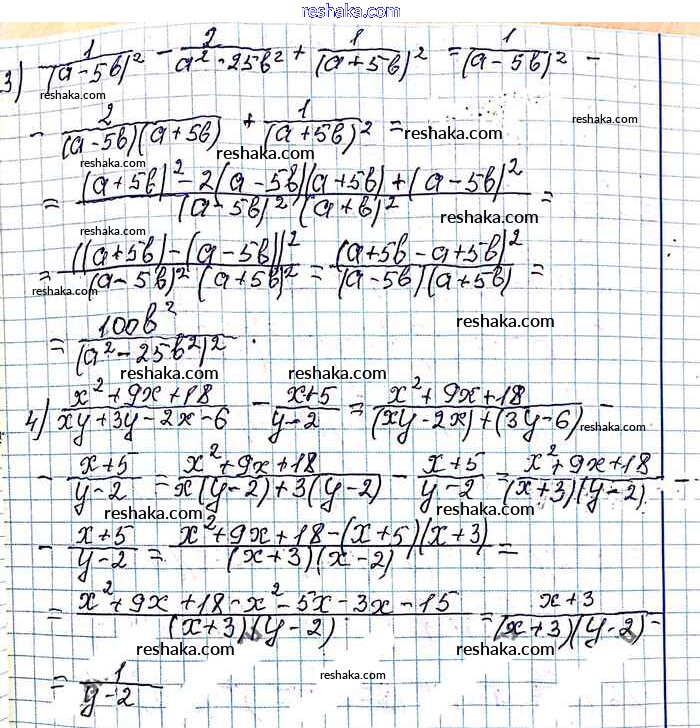 reshaka.com
3) 1/(a-5b)² - 2/(a²-25b²) + 1/(a+5b)² = 1/(a-5b)² -
reshaka.com reshaka.com reshaka.com
- 2/((a-5b)(a+5b)) + 1/(a+5b)² =
reshaka.com reshaka.com reshaka.com
= ((a+5b)² - 2(a-5b)(a+5b) + (a-5b)²)/((a-5b)²(a+b)²) =
reshaka.com reshaka.com
= ((a+5b)-(a-5b))²/((a-5b)²(a+5b)²) = (a+5b-a+5b)²/((a-5b)(a+5b)) =
reshaka.com reshaka.com
= 100b²/(a²-25b²)².
reshaka.com reshaka.com
4) (x²+9x+18)/(xy+3y-2x-6) - (x+5)/(y-2) = (x²+9x+18)/((xy-2x)+(3y-6)) -
reshaka.com
- (x+5)/(y-2) = (x²+9x+18)/(x(y-2)+3(y-2)) - (x+5)/(y-2) = (x²+9x+18)/((x+3)(y-2)) -
reshaka.com reshaka.com
- (x+5)/(y-2) = (x²+9x+18-(x+5)(x+3))/((x+3)(x-2)) =
reshaka.com reshaka.com
= (x²+9x+18-x²-5x-3x-15)/((x+3)(y-2)) = (x+3)/((x+3)(y-2)) =
reshaka.com reshaka.com reshaka.com
= 1/(y-2)
reshaka.com